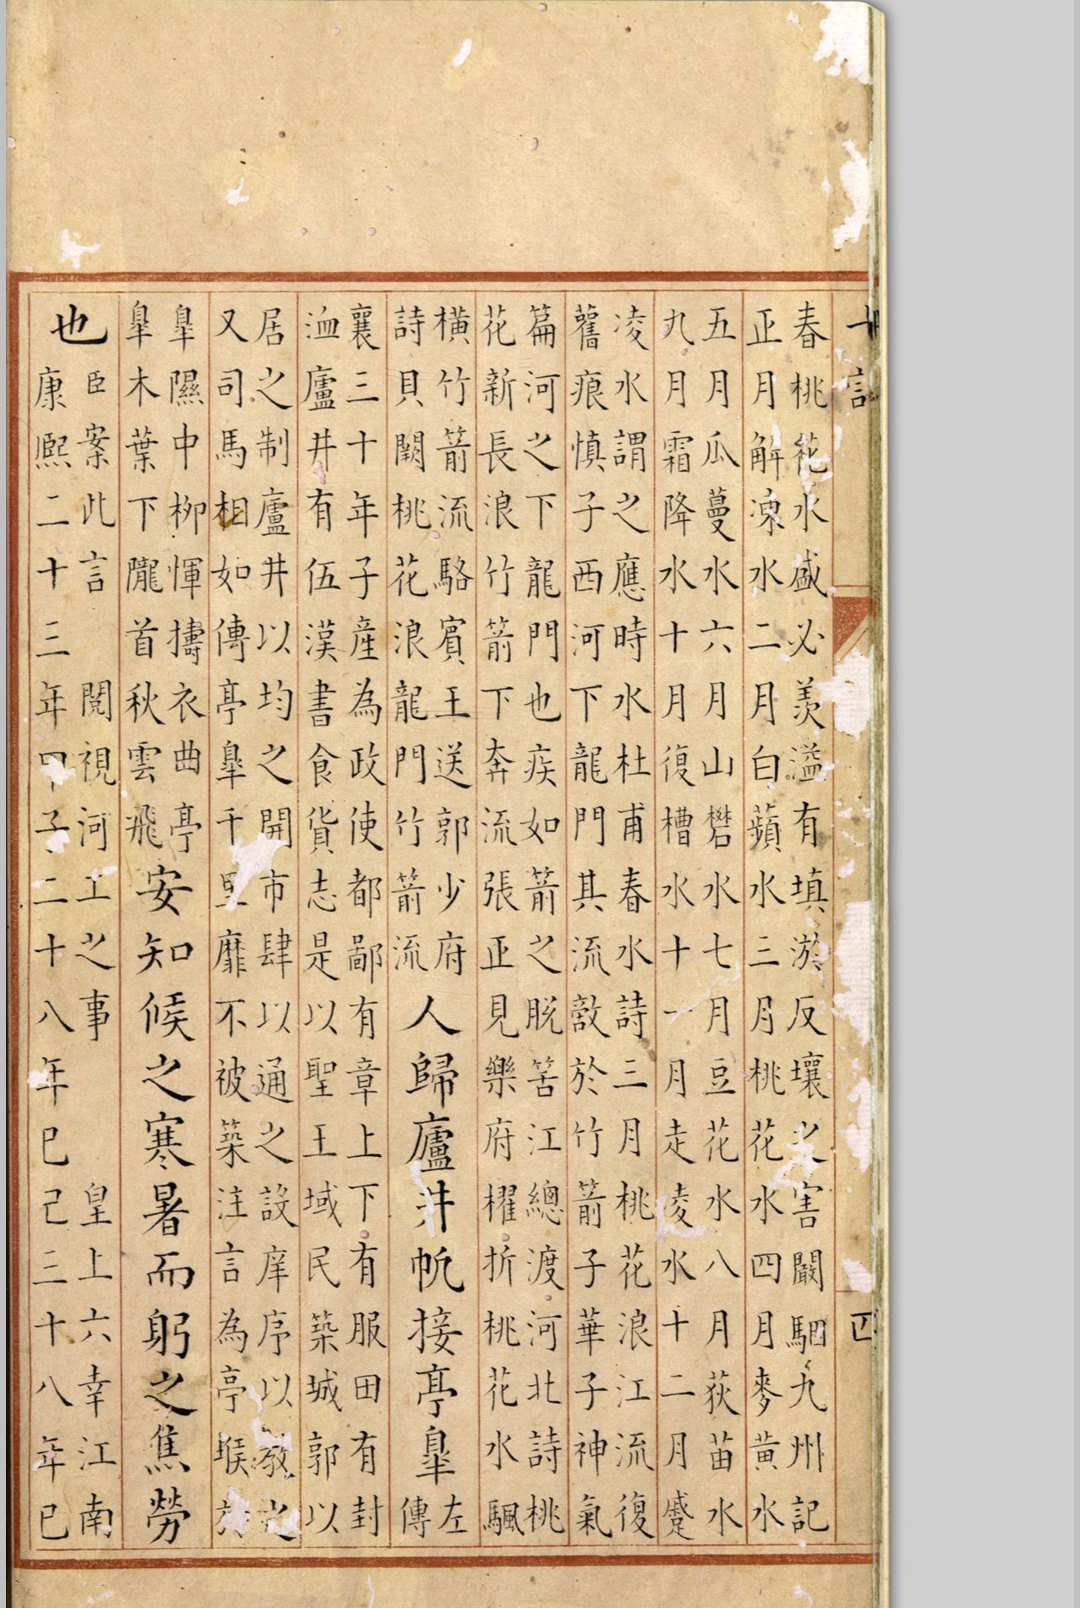 春桃花水盛必羨溢有填淤反壤之害闞駰九州記
正月解凍水二月白蘋水三月桃花水四月麥黄水
五月瓜蔓水六月山礬水七月豆花水八月荻苗水
九月霜降水十月復槽水十一月走凌水十二月蹙
凌水謂之應時水杜甫春水詩三月桃花浪江流復
舊痕慎子西河下龍門其流敨於竹箭子華子神氣
篇河之下龍門也疾如箭之脱筈江總渡河北詩桃
花新長浪竹箭下奔流張正見樂府櫂折桃花水颿
横竹箭流駱賓王送郭少府
詩貝闕桃花浪龍門竹箭流
人歸廬井帆接亭臯
左
傳
襄三十年子産為政使都鄙有章上下有服田有封
洫廬井有伍漢書食貨志是以聖王域民築城郭以
居之制廬井以均之開市肆以通之設庠序以教之
又司馬相如傳亭臯千里靡不被築注言為亭堠於
臯隰中柳惲擣衣曲亭
臯木葉下隴首秋雲飛
安知候之寒暑而躬之焦勞
也
臣案此言 閱視河工之事 皇上六幸江南
康熙二十三年甲子二十八年巳己三十八年巳